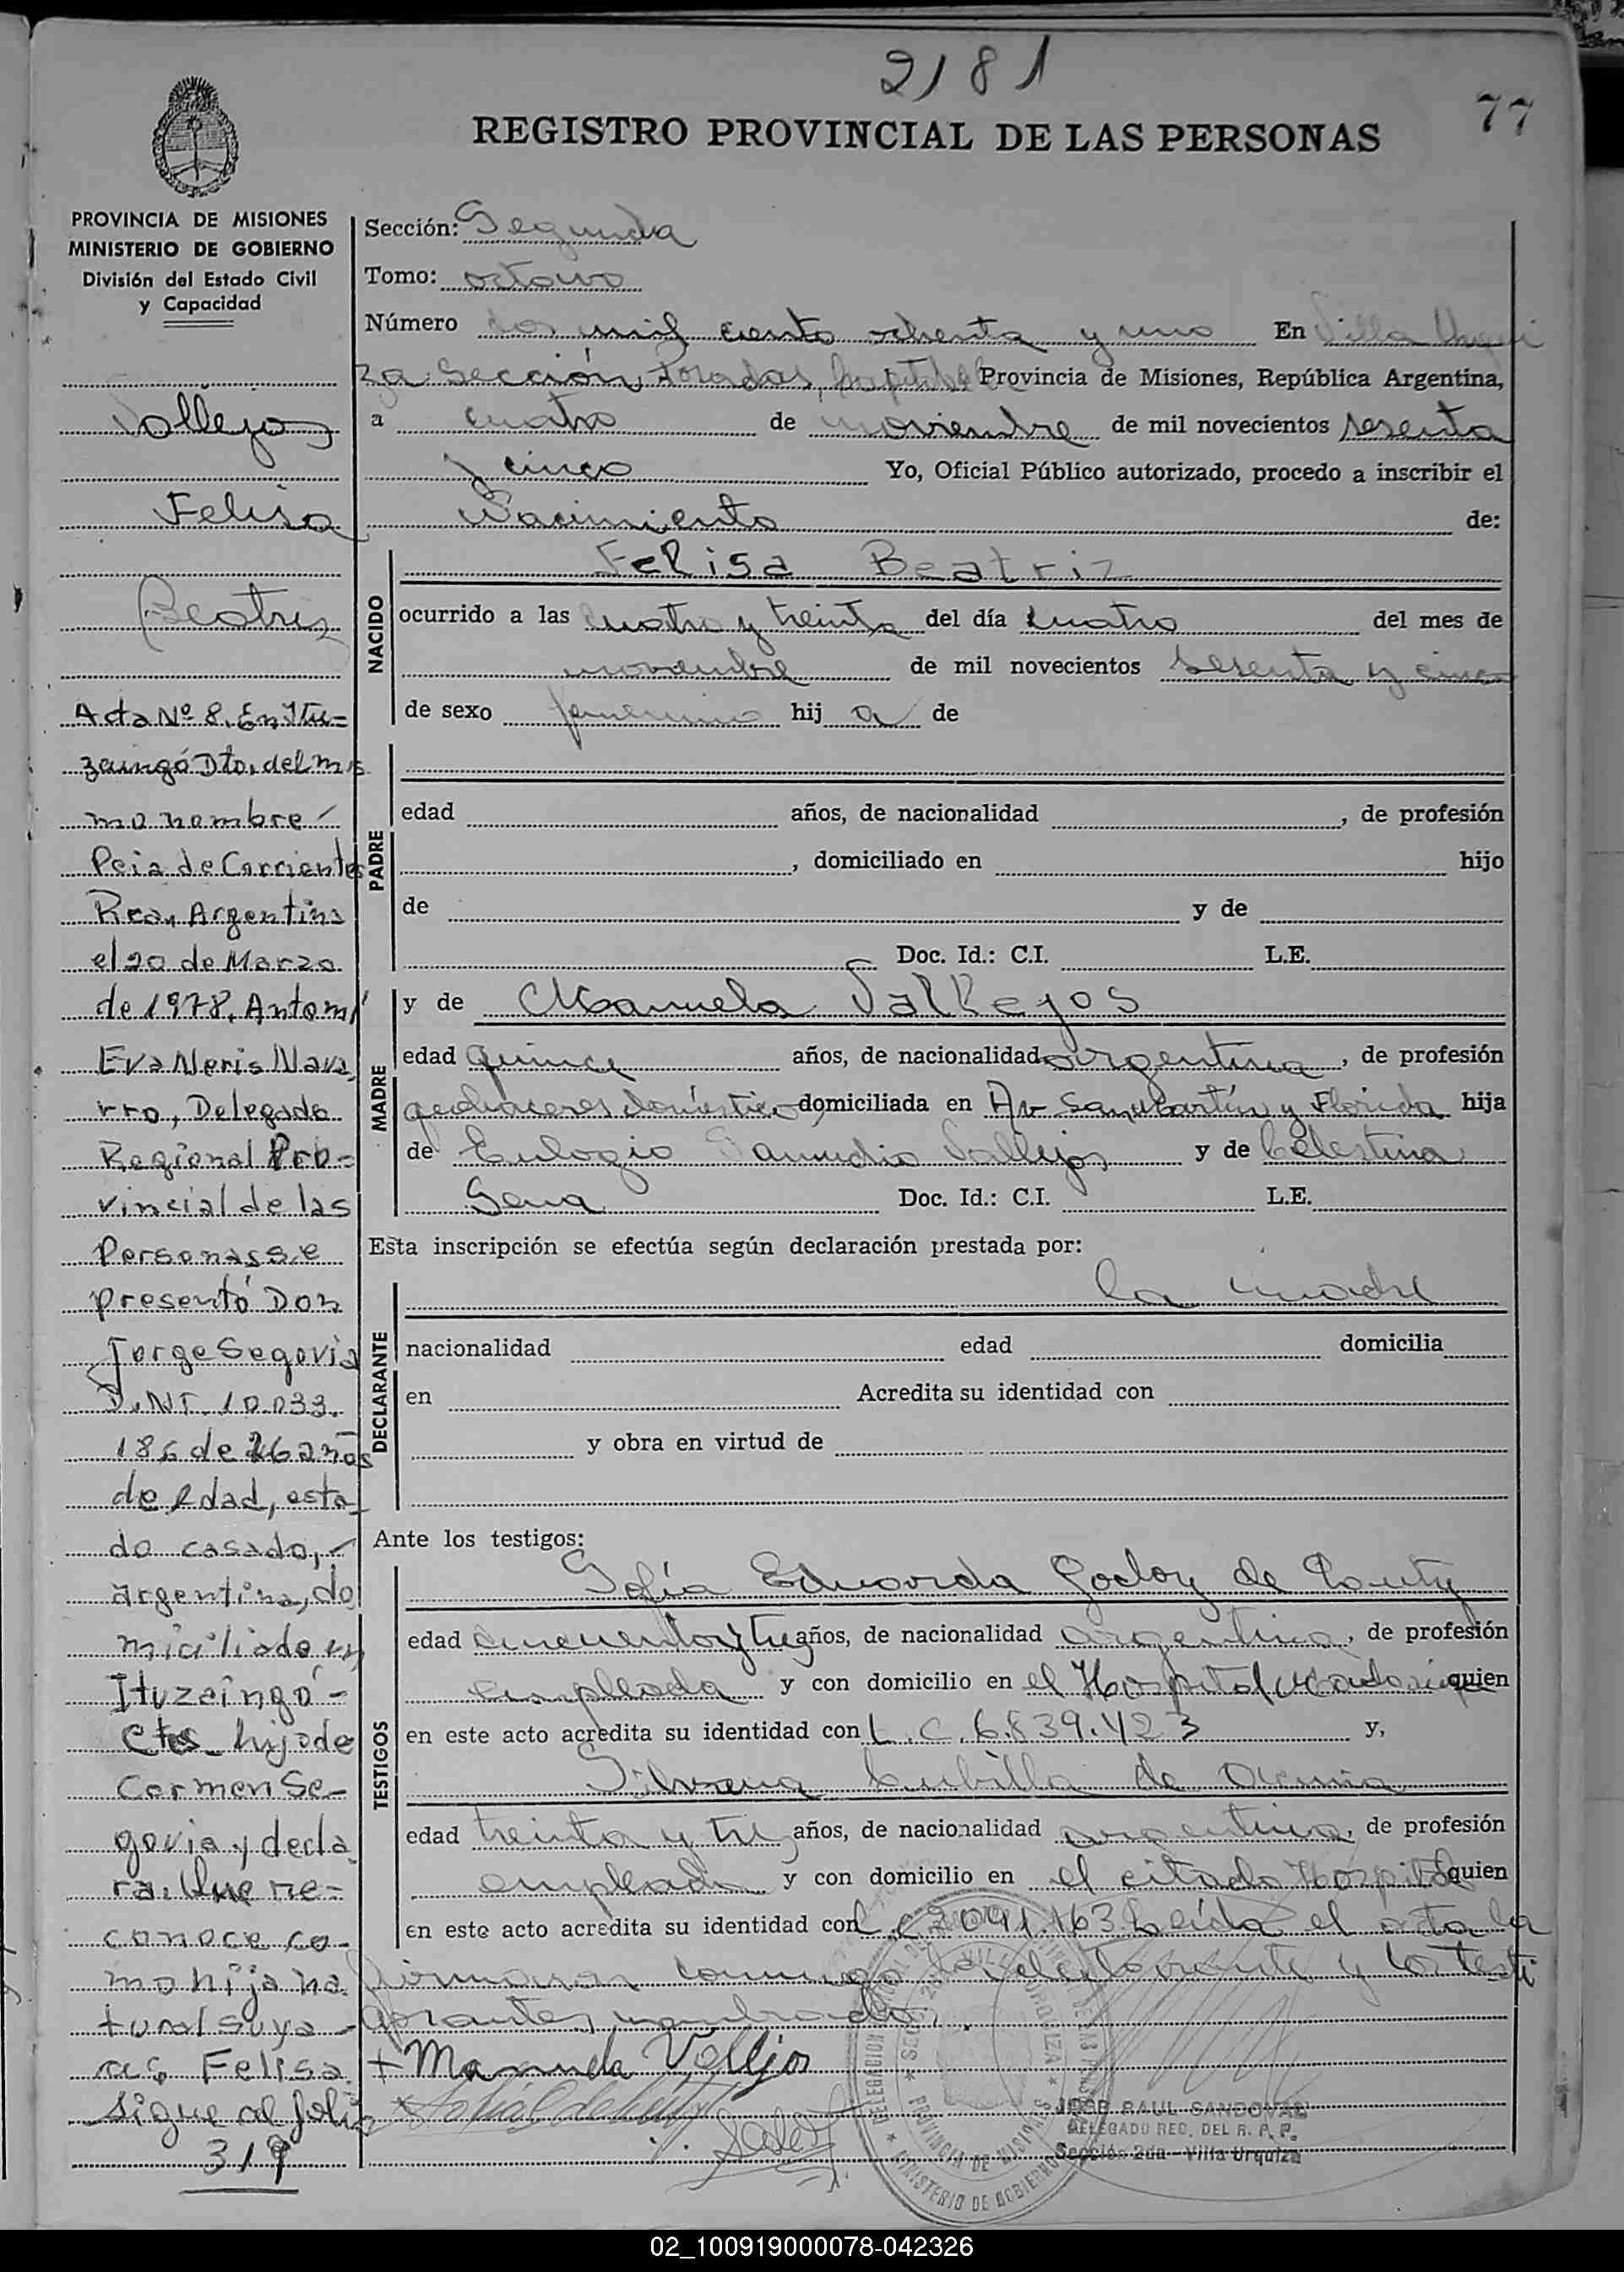 2181
77
REGISTRO PROVINCIAL DE LAS PERSONAS
PROVINCIA DE MISIONES
MINISTERIO DE GOBIERNO
División del Estado Civil
y Capacidad
Vallejos
Felisa
Beatriz
Acta Nº 8. En Itu-
zaingó Dto. del mis
mo nombre
Pcia de Corrientes
Rca, Argentina
el 20 de Marzo
de 1978, Ante mí
Eva Neris Nava
rro, Delegada
Regional Pro-
vincial de las
Personas se
presentó Don
Jorge Segovia
D.N.I. 10.033.
186 de 26 años
de edad, esta
do casado,
argentino, do
miciliado en
Ituzaingó-
Ctes hijo de
Carmen Se-
govia y decla
ra: Que re-
conoce co-
mo hija na
tural suya
a Felisa
sigue al folio
319
Sección: Segunda
Tomo: octavo
Número dos mil ciento ochenta y uno En Villa Urqui
za Sección, Posadas, Provincia de Misiones, República Argentina,
a cuatro de noviembre de mil novecientos sesenta
y cinco Yo, Oficial Público autorizado, procedo a inscribir el
Nacimiento de:
NACIDO
Felisa Beatriz
ocurrido a las cuatro y treinta del día cuatro del mes de
noviembre de mil novecientos sesenta y cinco
de sexo femenino hij a de
PADRE
edad años, de nacionalidad , de profesión
, domiciliado en hijo
de y de
Doc. Id.: C.I. L.E.
MADRE
y de Manuela Vallejos
edad quince años, de nacionalidad argentina, de profesión
quehaceres domésticos domiciliada en Av San Martín y Florida hija
de Eulogio Vallejos y de Celestina
Sena Doc. Id.: C.I. L.E.
Esta inscripción se efectúa según declaración prestada por:
DECLARANTE
la madre
nacionalidad edad domicilia
en Acredita su identidad con
y obra en virtud de
Ante los testigos:
TESTIGOS
Sofía Eduarda Godoy de
edad cincuenta y tres años, de nacionalidad argentina, de profesión
empleada y con domicilio en el Hospital Madariaga quien
en este acto acredita su identidad con L.C. 6.839.423 y,
Silvana Cubilla de Acuña
edad treinta y tres años, de nacionalidad argentina, de profesión
empleada y con domicilio en el citado Hospital quien
en este acto acredita su identidad con L.C. 2.091.163. Leída el acta la
firmaron conmigo la declarante y los testi
+ Manuela Vallejos
JOSE RAUL SANDOVAL
DELEGADO REG. DEL R. P. P.
Sección 2da - Villa Urquiza
PROVINCIA DE MISIONES
MINISTERIO DE GOBIERNO
02_100919000078-042326